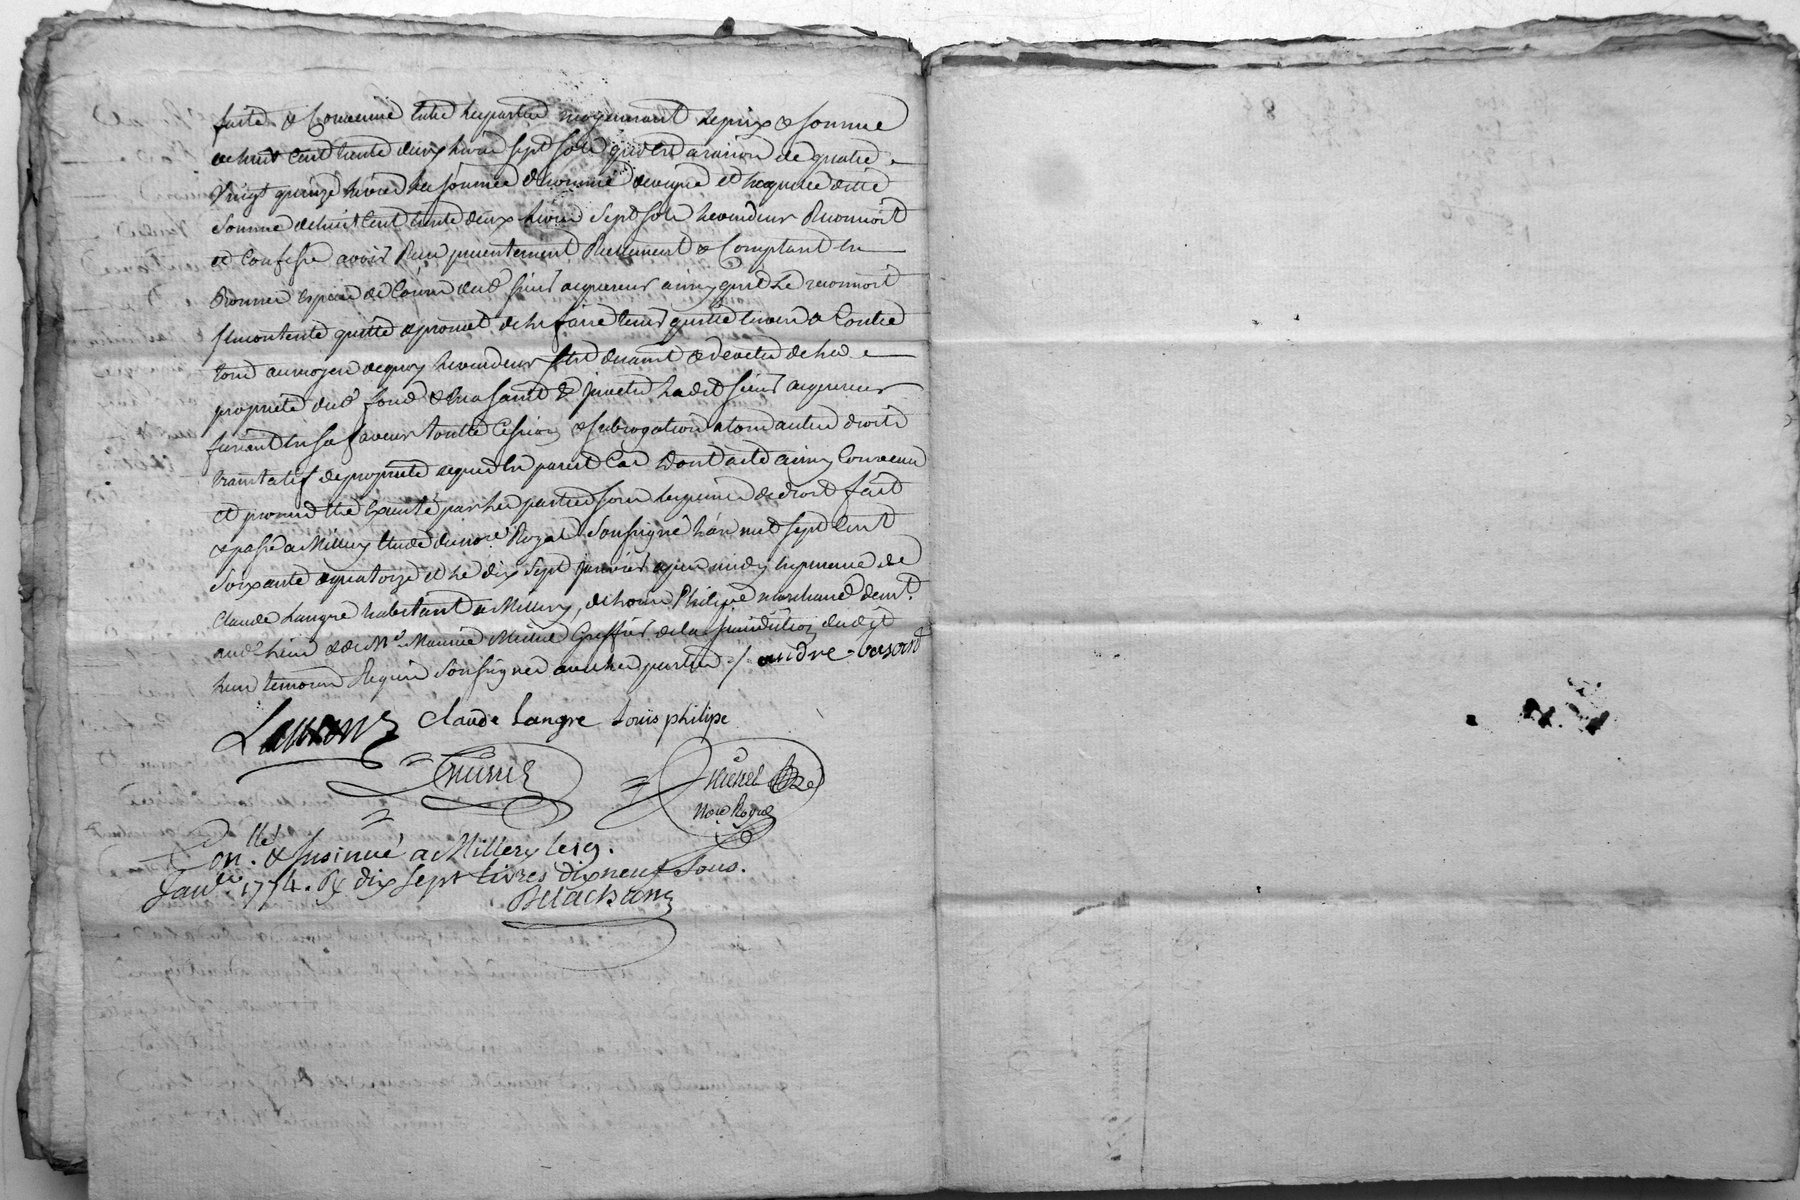 faite & Convenue Entre les parties moyennant le prix & somme
de huit Cent trente deux livres sept sols qui est a raison de quatre
vingt quinze livres la journée d'homme de vigne et laquelle ditte
somme de huit Cent trente deux livres sept sols le vendeur Reconnoit
et Confesse avoir Reçu presentement Reellement & Comptant en
Bonnes espèces de Cours dud sieur acquereur ainsy qu'il le reconnoit
s'en contente quitte & promet de le faire tenir quitte envers & Contre
tous au moyen de quoy le vendeur s'est demit & devetu de la
propriété dud fond & en a saisit & investu ledit sieur acquereur
faisant en sa faveur toutte Cession & subrogation & tous autres droits
translatif de propriété requis en pareil Cas Dont acte ainsy Convenu
et promis être Executé par les parties sous les peines de droit fait
& passé a Millery Etude du nore Royal Soussigné l'an mil sept Cent
soixante & quatorze et le dix sept janvier apres midy en presence de
Claude Langre habitant a Millery, de Louis Philipe marchand demt.
aud lieu & de Me Maurice Greffier de la Jurisdiction dudit
lieu temoins Requis Soussignés avec les parties ./. andre
Claude Langre Louis philipe
nore Royal
Conllé. & Insinué a Millery le 19.
Janv. 1774. R dix sept livres dix neuf sous.